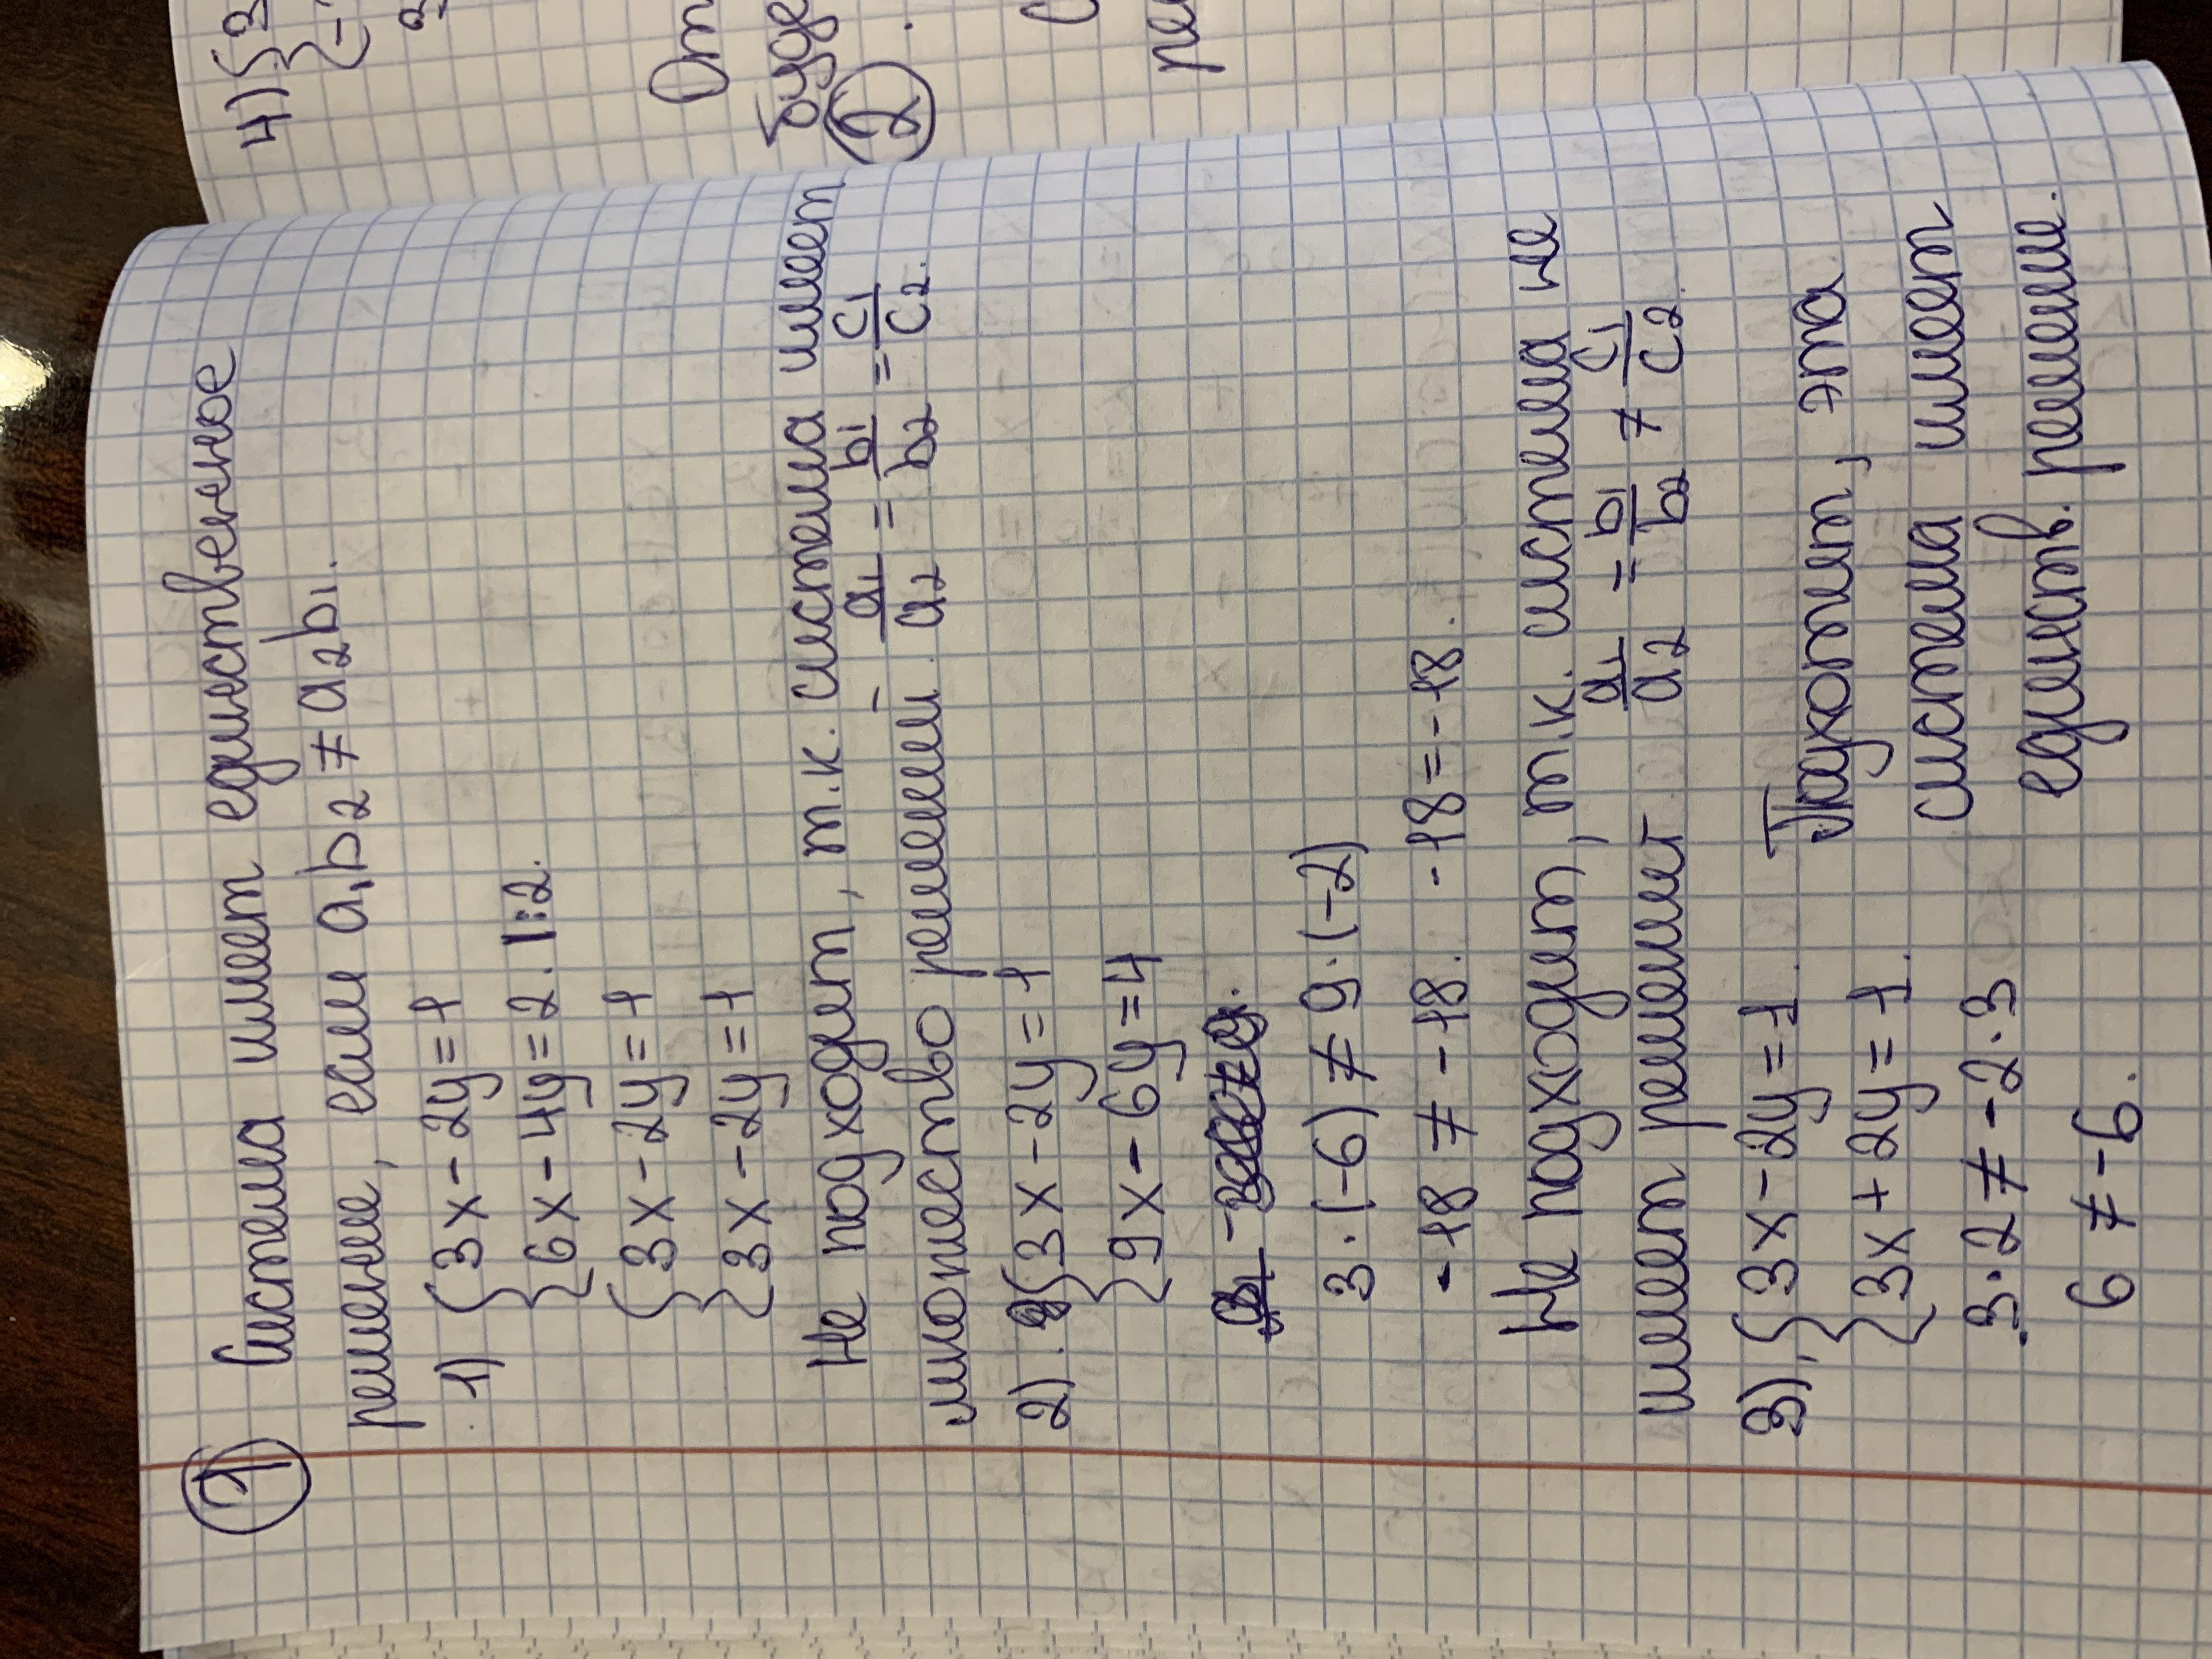 1 Система имеет единственное
решение, если a1b2 ≠ a2b1.
1) { 3x - 2y = 1
{ 6x - 4y = 2. |:2.
{ 3x - 2y = 1
{ 3x - 2y = 1
Не подходит, т.к. система имеет
множество решений. a1/a2 = b1/b2 = c1/c2.
2). { 3x - 2y = 1
{ 9x - 6y = 4
3·(-6) ≠ 9·(-2)
-18 ≠ -18. -18 = -18.
Не подходит, т.к. система не
имеет решений a1/a2 = b1/b2 ≠ c1/c2.
3). { 3x - 2y = 1. Подходит, эта
{ 3x + 2y = 1. система имеет
3·2 ≠ -2·3 единств. решение.
6 ≠ -6.
4) {
От
буде
2